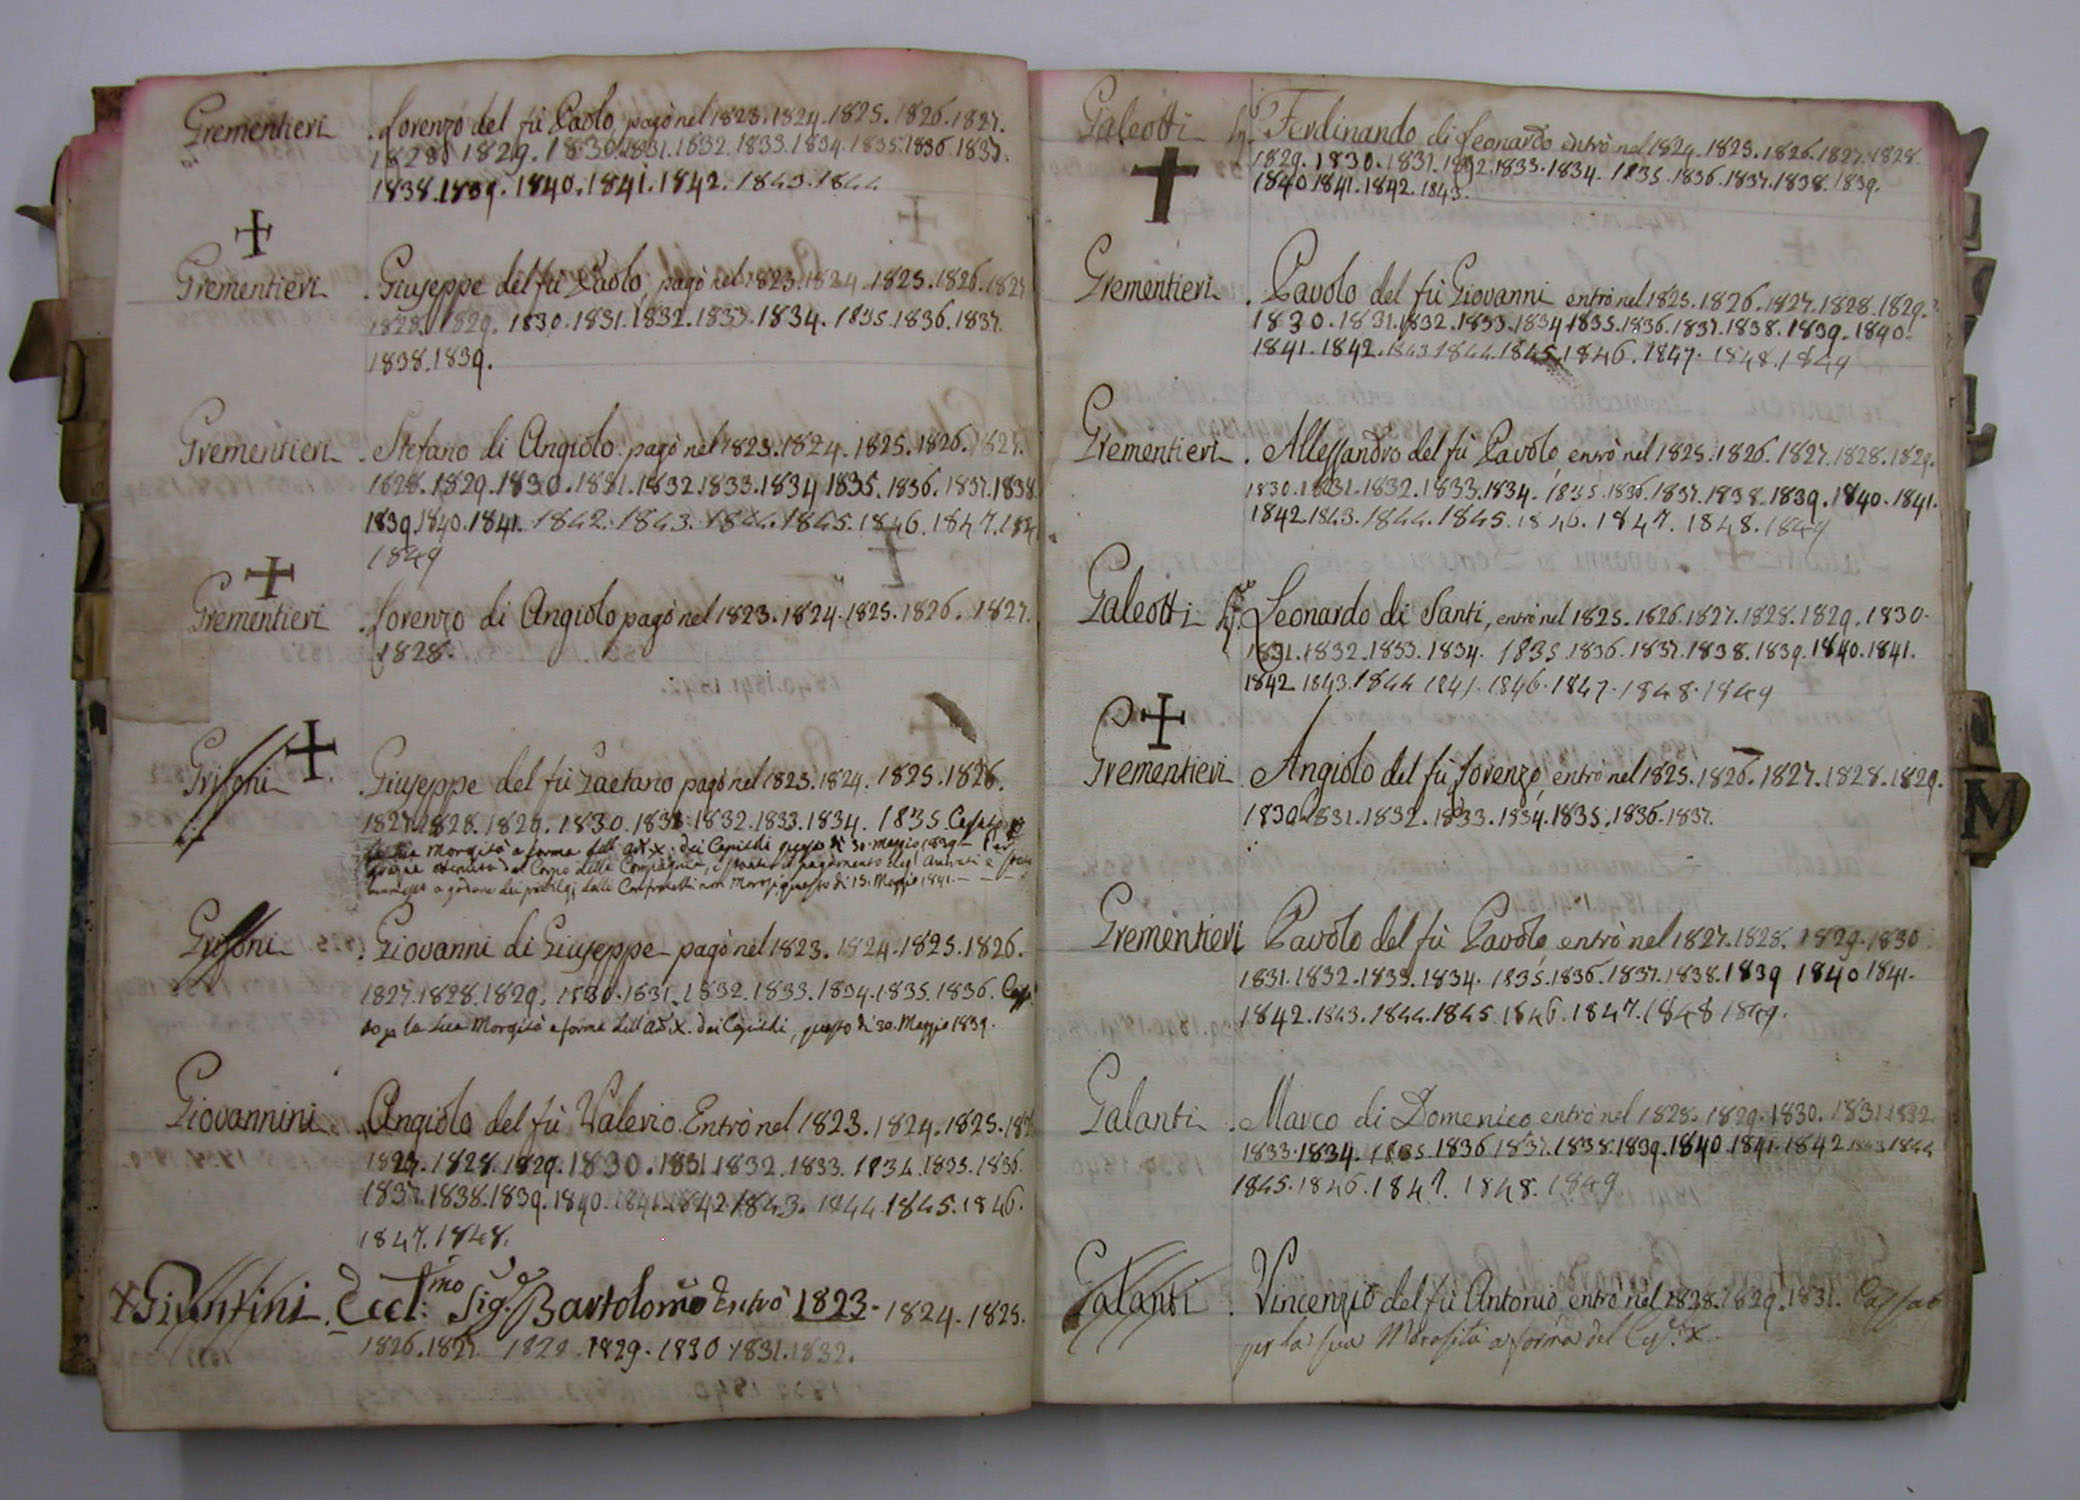 Grementieri . Lorenzo del fù Paolo, pagò nel 1823. 1824. 1825. 1826. 1827.
1828. 1829. 1830. 1831. 1832. 1833. 1834. 1835. 1836. 1837.
1838. 1839. 1840. 1841. 1842. 1843. 1844
Grementieri . Giuseppe del fù Paolo, pagò nel 1823. 1824. 1825. 1826. 1827
1828. 1829. 1830. 1831. 1832. 1833. 1834. 1835. 1836. 1837.
1838. 1839.
Grementieri . Stefano di Angiolo. pagò nel 1823. 1824. 1825. 1826. 1827.
1828. 1829. 1830. 1831. 1832. 1833. 1834 1835. 1836. 1837. 1838.
1839. 1840. 1841. 1842. 1843. 1844. 1845. 1846. 1847.
1849
Grementieri . Lorenzo di Angiolo pagò nel 1823. 1824. 1825. 1826. 1827.
1828.
Grifoni . Giuseppe del fù Gaetano pagò nel 1823. 1824. 1825. 1826.
1827. 1828. 1829. 1830. 1831. 1832. 1833. 1834. 1835.
la sua Morosità a forma dell' art. X. dei Capitoli questo dì 30. Maggio 1839.
grazia ottenuta dal Corpo della Compagnia, pagamento degl' Arretrati
a godere dei privilegj delle Confratelli non Morosi questo dì 13. Maggio 1841.
Grifoni . Giovanni di Giuseppe pagò nel 1823. 1824. 1825. 1826.
1827. 1828. 1829. 1830. 1831. 1832. 1833. 1834. 1835. 1836. Cassa
to p la sua Morosità a forma dell' art. X. dei Capitoli, questo dì 30. Maggio 1839.
Giovannini . Angiolo del fù Valerio. Entrò nel 1823. 1824. 1825.
1827. 1828. 1829. 1830. 1831. 1832. 1833. 1834. 1835. 1836.
1837. 1838. 1839. 1840. 1841. 1842. 1843. 1844. 1845. 1846.
1847. 1848.
Giuntini . Eccl:mo Sig.e Bartolomeo Entrò 1823. 1824. 1825.
1826. 1827. 1828. 1829. 1830. 1831. 1832.
Galeotti Ferdinando di Leonardo entrò nel 1824. 1825. 1826. 1827. 1828.
1829. 1830. 1831. 1832. 1833. 1834. 1835. 1836. 1837. 1838. 1839.
1840 1841. 1842. 1843.
Grementieri . Pavolo del fù Giovanni entrò nel 1825. 1826. 1827. 1828. 1829.
1830. 1831. 1832. 1833. 1834 1835. 1836. 1837. 1838. 1839. 1840.
1841. 1842. 1843 1844. 1845. 1846. 1847. 1848. 1849
Grementieri . Allessandro del fù Pavolo, entrò nel 1825. 1826. 1827. 1828. 1829.
1830. 1831. 1832. 1833. 1834. 1835. 1836. 1837. 1838. 1839. 1840. 1841.
1842. 1843. 1844. 1845. 1846. 1847. 1848. 1849
Galeotti Leonardo di Santi, entrò nel 1825. 1826. 1827. 1828. 1829. 1830.
1831. 1832. 1833. 1834. 1835. 1836. 1837. 1838. 1839. 1840. 1841.
1842 1843. 1844 1846. 1847. 1848. 1849
Grementieri Angiolo del fù Lorenzo, entrò nel 1825. 1826. 1827. 1828. 1829.
1830. 1831. 1832. 1833. 1834. 1835. 1836. 1837.
M
Grementieri Pavolo del fù Pavolo, entrò nel 1827. 1828. 1829. 1830
1831. 1832. 1833. 1834. 1835. 1836. 1837. 1838. 1839 1840 1841.
1842. 1843. 1844. 1845 1846. 1847. 1848 1849.
Galanti . Marco di Domenico entrò nel 1828. 1829. 1830. 1831. 1832
1833. 1834. 1835 1836 1837. 1838. 1839. 1840. 1841. 1842 1843 1844
1845. 1846. 1847. 1848. 1849
Galanti . Vincenzio del fù Antonio, entrò nel 1828. 1829. 1831. Cassato
per la sua Morosità a forma del Cap. X.